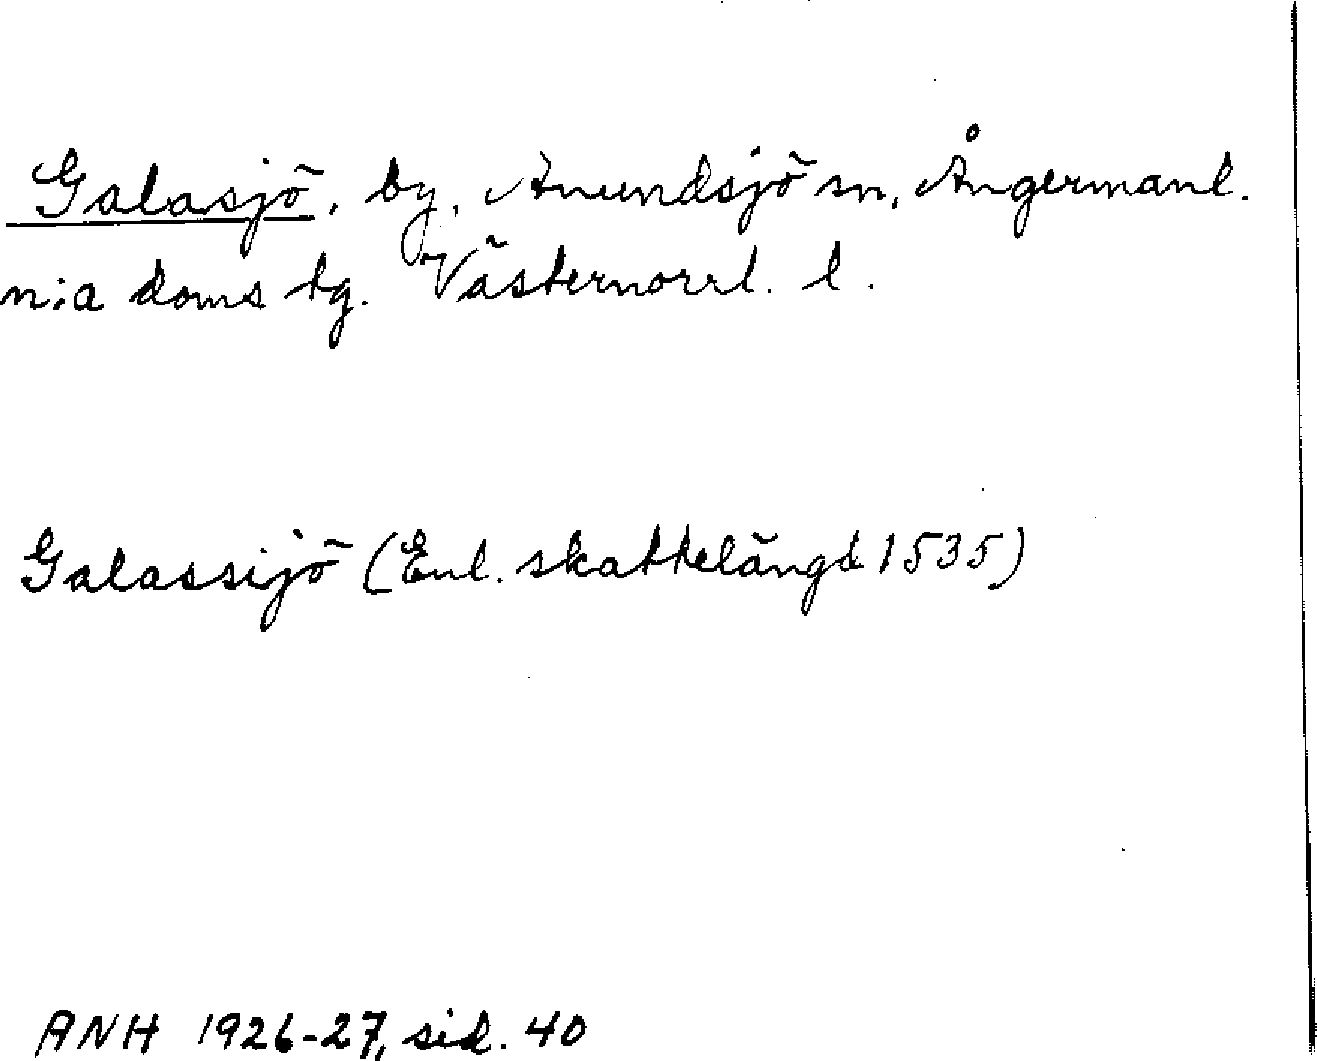 Galasjö, by, Anundsjö sn, Ångermanl.
n:a doms tg. Västernorrl. l.
Galassijö (Enl. skattelängd 1535)
ANH 1926-27, sid. 40